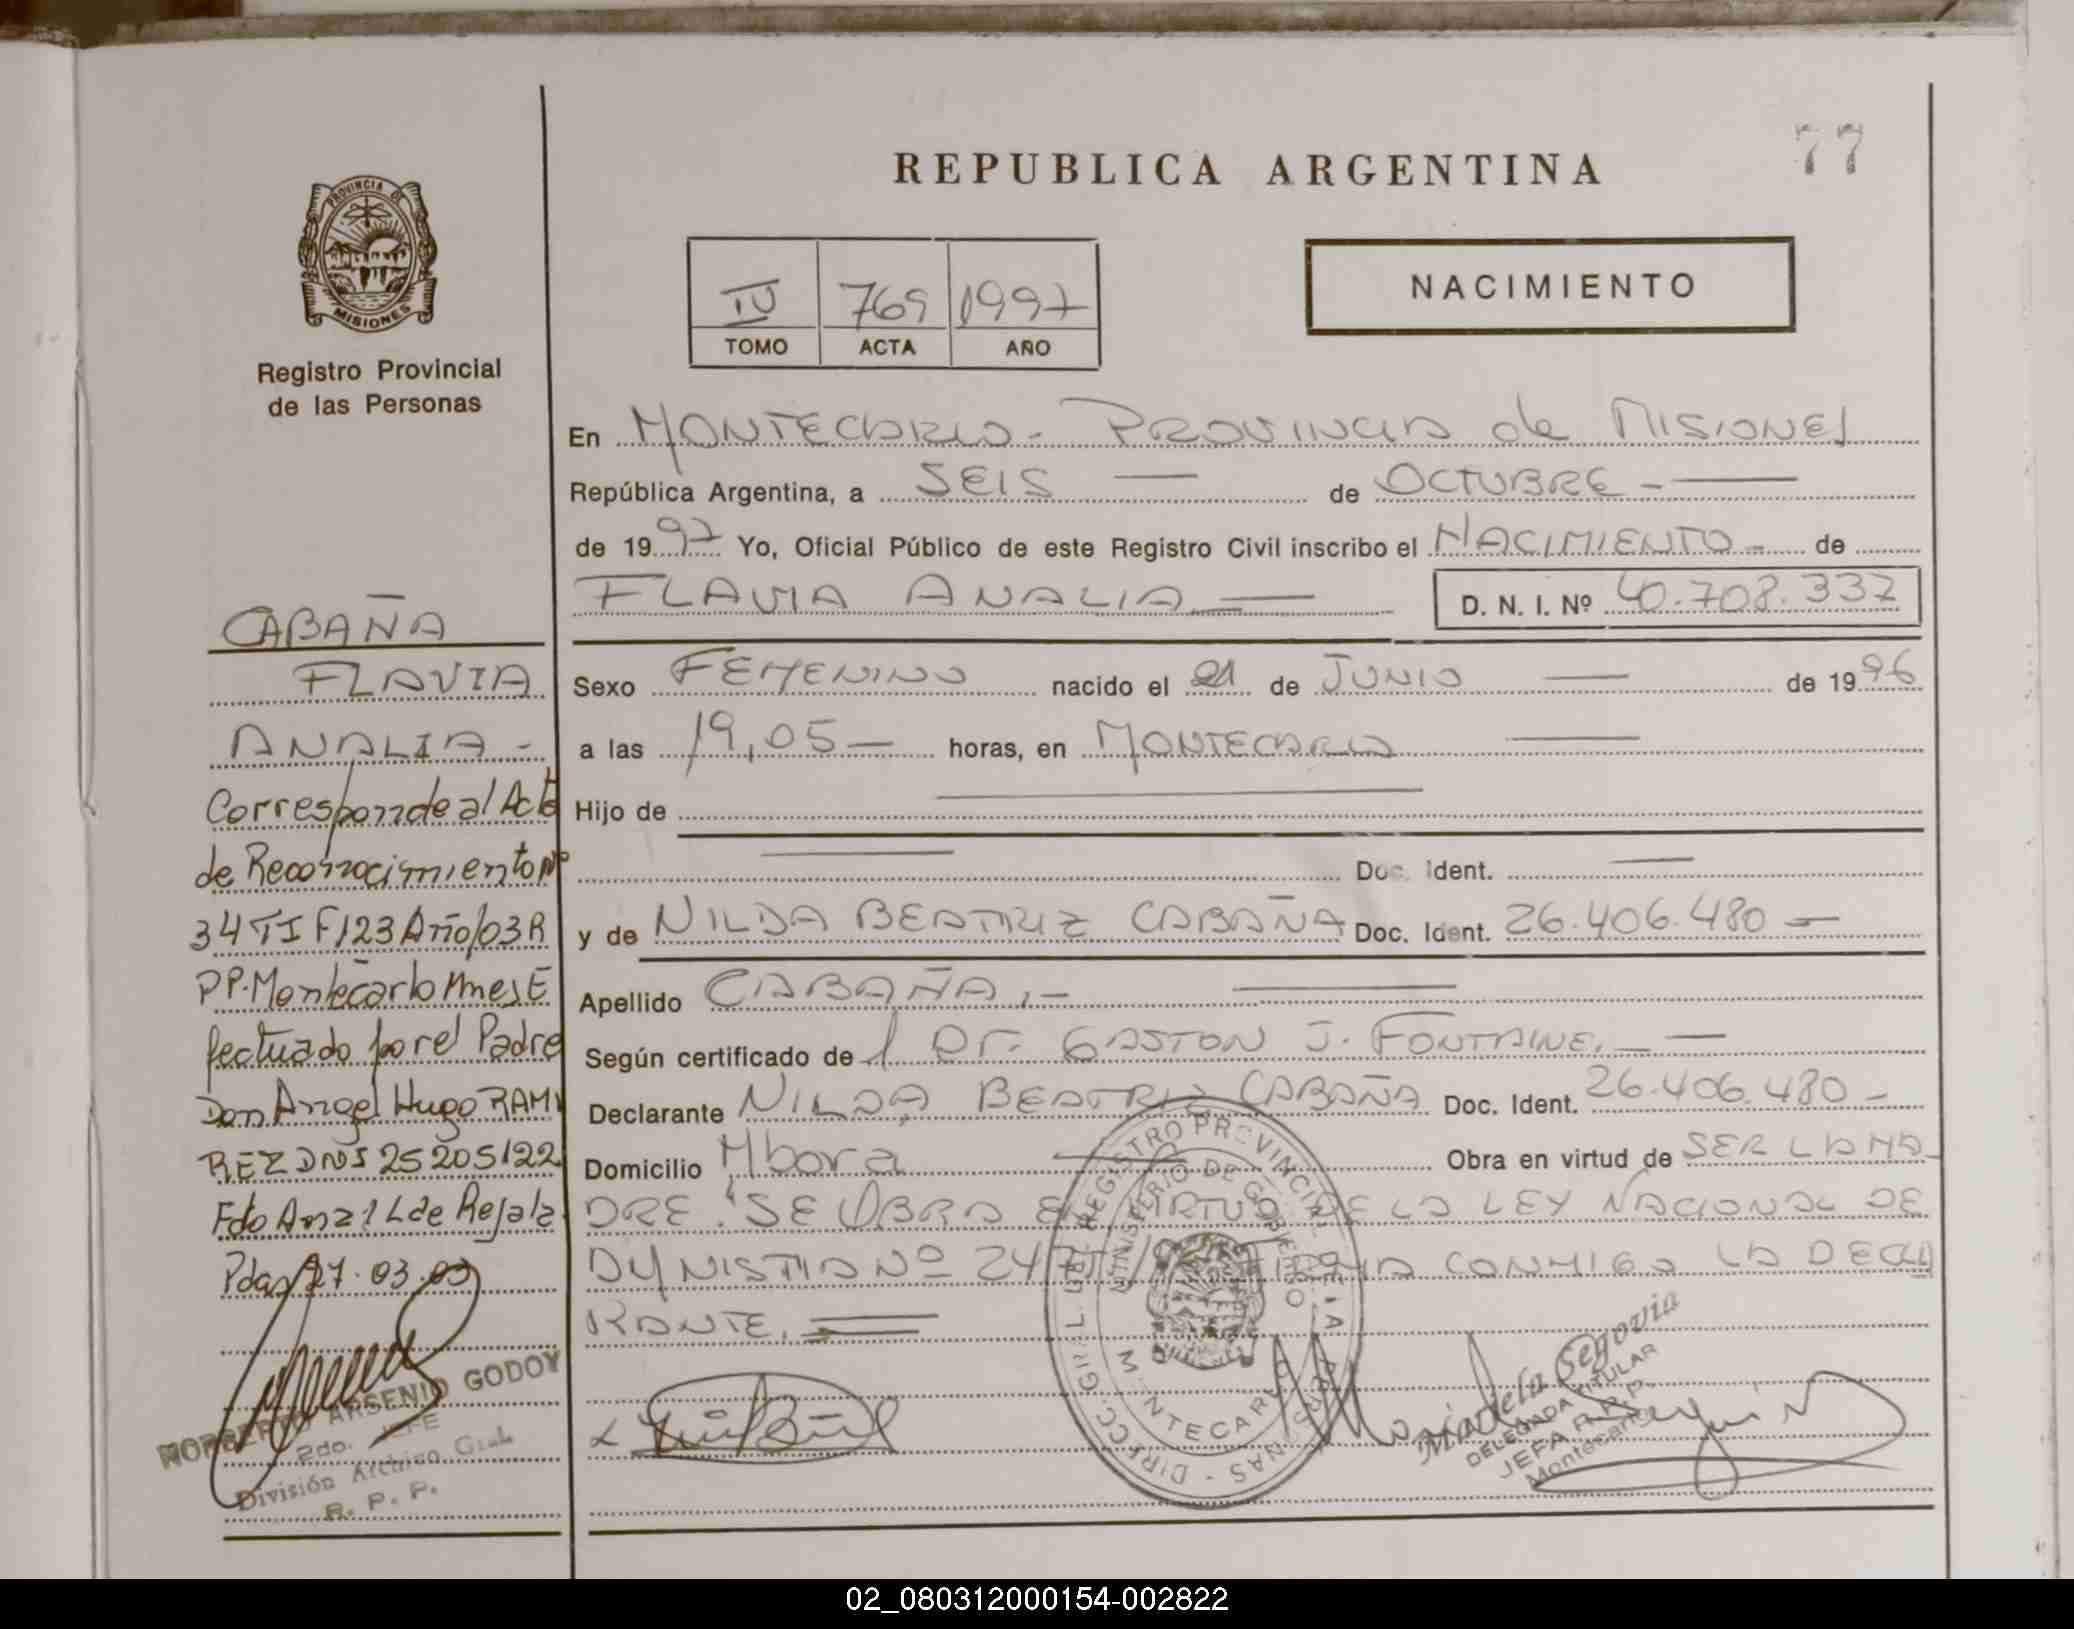 77
REPUBLICA ARGENTINA
PROVINCIA DE
MISIONES
Registro Provincial
de las Personas
IV 769 1997
TOMO ACTA AÑO
NACIMIENTO
En MONTECARLO - PROVINCIA de MISIONES
República Argentina, a SEIS — de OCTUBRE - —
de 1997 Yo, Oficial Público de este Registro Civil inscribo el NACIMIENTO - de
FLAVIA ANALIA — D. N. I. Nº 40.708.337
Sexo FEMENINO nacido el 21 de JUNIO — de 1996
a las 19,05 — horas, en MONTECARLO —
Hijo de —
— Doc. Ident. —
y de NILDA BEATRIZ CABAÑA Doc. Ident. 26.406.480 —
Apellido CABAÑA,- —
Según certificado de Dr. GASTON J. FONTAINE. —
Declarante NILDA BEATRIZ CABAÑA Doc. Ident. 26.406.480 -
Domicilio Mbora — Obra en virtud de SER LA MA
DRE. SE OBRA EN VIRTUD DE LA LEY NACIONAL DE
AMNISTIA Nº FIRMA CONMIGO LA DECLA
RANTE. =
CABAÑA
FLAVIA
ANALIA -
Corresponde al Acta
de Reconocimiento Nº
34 TI F/123 Año/03 R
PP. Montecarlo Mnes E
fectuado por el Padre
Don Angel Hugo RAMI
REZ DNI 25205122
Fdo
Pdas 27.03.03
NORBERTO ARSENIO GODOY
2do. JEFE
División Archivo Gral.
R. P. P.
DIRECC. GRAL. DEL REGISTRO PROVINCIAL DE LAS PERSONAS -
MINISTERIO DE GOBIERNO
MONTECARLO
Segovia
DELEGADA TITULAR
JEFA R.P.P.
Montecarlo
02_080312000154-002822